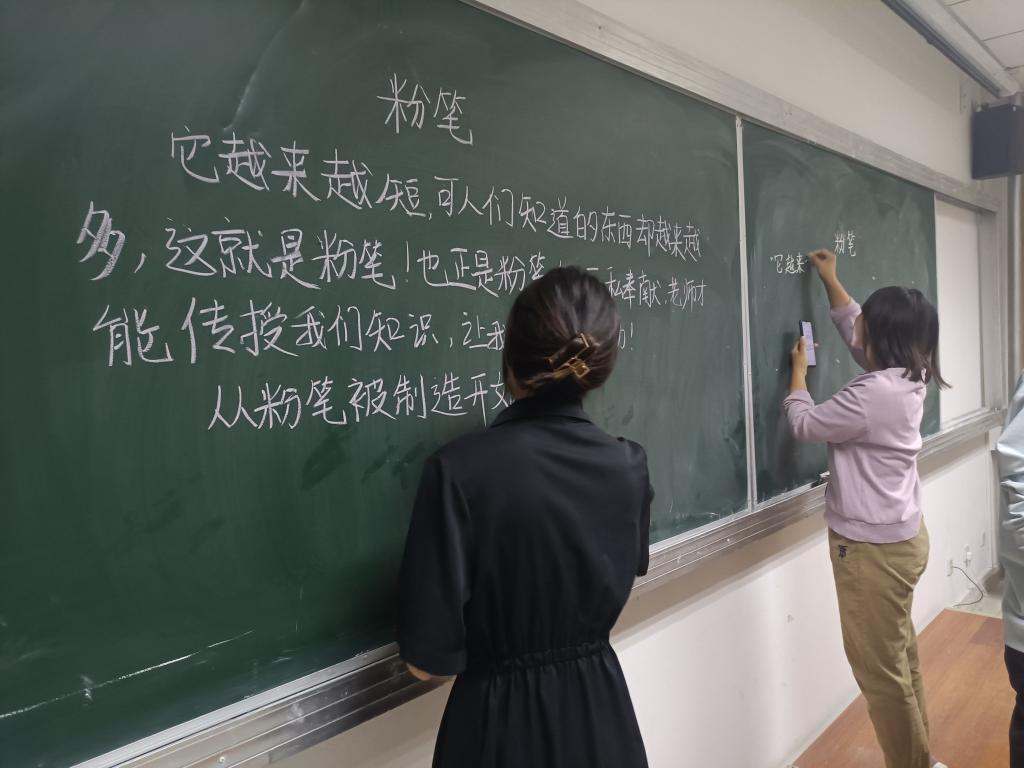 粉笔
它越来越短,可人们知道的东西却越来越
多,这就是粉笔!也正是粉笔 私奉献,老师才
能传授我们知识,让我 !
从粉笔被制造开
粉笔
“它越来